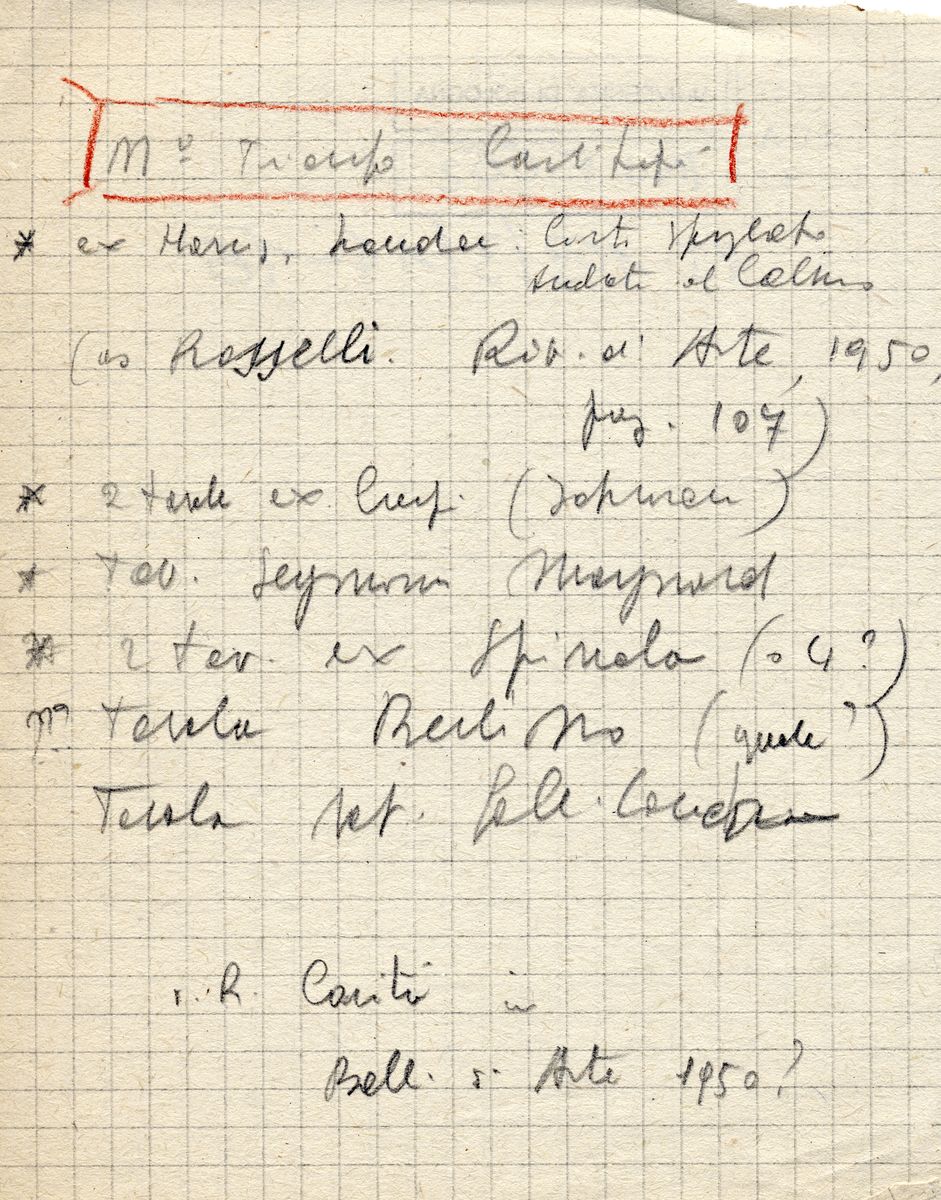 Mº Trionfo Castità
* ex Harris, London: Cristo spogliato
andata al Calvario
(cs Rosselli. Riv. d'Arte, 1950,
pag. 107)
* 2 tavole ex Crespi (Johnson)
* tav. Seymour Maynard
* 2 tav. ex Spinola (o 4?)
Tavola Berlino (quale?)
Tavola Nat. Gall. London
v. R. Carità in
Boll. d'Arte 1950?